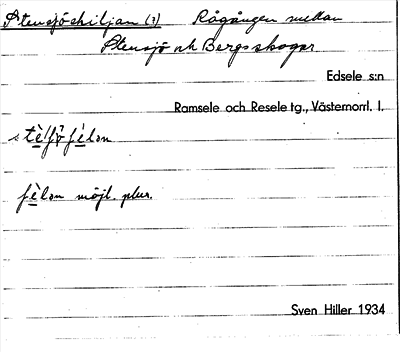 Stensjöskiljan (3) Rågången mellan
Stensjö och Bergsskogar
Edsele s:n
Ramsele och Resele tg., Västernorrl. l.
fèlan möjl. plur.
Sven Hiller 1934